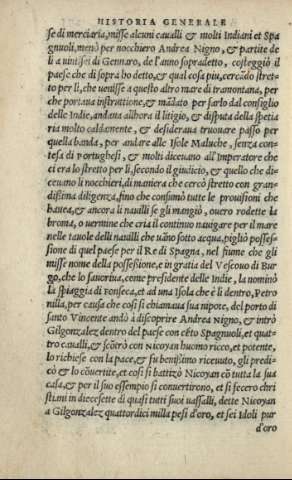 HISTORIA GENERALE
se di merciaria, misse alcuni caualli & molti Indiani et Spa
gnuoli, menò per nocchiero Andrea Nigno, & partite de
li a uintisei di Gennaro, de l'anno sopradetto, costeggiò il
paese che di sopra ho detto, & qual cosa piu, cercãdo stret-
to per li, che uenisse a questo altro mare di tramontana, per
che portaua instruttione, & mãdato per farlo dal consiglio
delle Indie, andaua allhora il litigio, & disputa della spetia
ria molto caldamente, & desideraua truouare passo per
quella banda, per andare alle Isole Maluche, senza con-
tesa di Portughesi, & molti diceuano all'Imperatore che
ci era lo stretto per li, secondo il giudicio, & quello che di-
ceuano li nocchieri, di maniera che cercò stretto con gran-
dissima diligenza, fino che consumò tutte le prouisioni che
hauea, & ancora li nauilli se gli mangiò, ouero rodette la
broma, o uermine che cria il continuo nauigare per il mare
nelle tauole delli nauilli che uãno sotto acqua, pigliò posses-
sione di quel paese per il Re di Spagna, nel fiume che gli
misse nome della possessione, e in gratia del Vescouo di Bur
go, che lo fauoriua, come presidente delle Indie, la nominò
la spiaggia di Fonseca, et ad una Isola che è li dentro, Petro
nilla, per causa che cosi si chiamaua sua nipote, del porto di
santo Vincente andò à discoprire Andrea Nigno, & intrò
Gilgonzalez dentro del paese con cẽto Spagnuoli, et quat-
tro caualli, & scõtrò con Nicoyan huomo ricco, et potente,
lo richiese con la pace, & fu benissimo riceuuto, gli predi-
cò & lo cõuertite, et cosi si battizò Nicoyan cõ tutta la sua
casa, & per il suo essempio si conuertirono, et si fecero chri
stiani in diecesette di quasi tutti suoi uassalli, dette Nicoyan
a Gilgonzalez quattordici milla pesi d'oro, et sei Idoli pur
d'oro